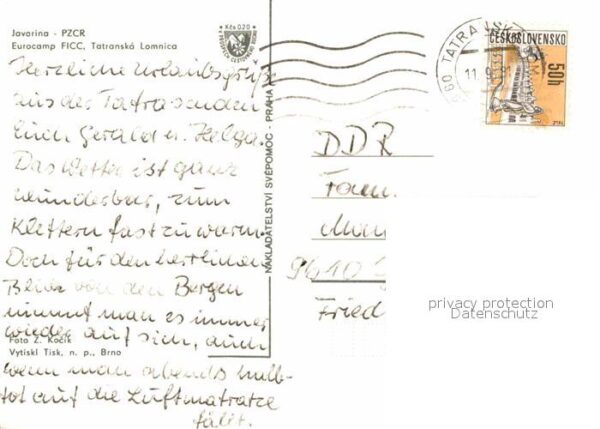 Javorina - PZCR
Eurocamp FICC, Tatranská Lomnica
Kčs 0,20
Herzliche Urlaubsgrüße
aus der Tatra senden
Euch Gerald u. Helga.
Das Wetter ist ganz
wunderbar, zum
Klettern fast zu warm.
Doch für den herrlichen
Blick von den Bergen
nimmt man es immer
wieder auf sich, auch
Foto Z. Kočík
Vytiskl Tisk, n. p., Brno
wenn man abends halb-
tot auf die Luftmatratze
fällt.
NAKLADATELSTVÍ SVÉPOMOC - PRAHA
60 TATRANSK
11.9.
ČESKOSLOVENSKO
50h
DDR
Fam.
9610
Fried
privacy protection
Datenschutz